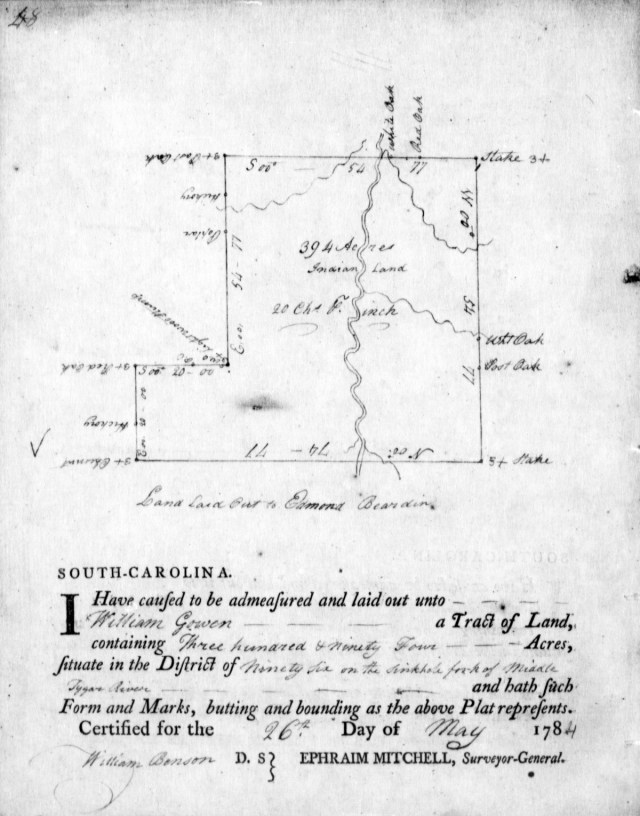 48
White Oak
Red Oak
3+ Post Oak
S 00
45
77
Stake 3+
Hickory
W 00
Poplar
394 Acres
Indian Land
54-77
20 Chs. Pr. inch
54
Wt Oak
Post Oak
77
3+ Red Oak
S 00 20-00
Hickory
3+ Chesnut
77 - 74 - N 00
3+ Stake
Land Laid Out to Edmond Beardin
SOUTH-CAROLINA.
I Have cauſed to be admeaſured and laid out unto
William Gowen a Tract of Land,
containing Three hundred & Ninety Four Acres,
ſituate in the Diſtrict of Ninety Six on the Sinkhole fork of Middle
Tygar River and hath ſuch
Form and Marks, butting and bounding as the above Plat repreſents.
Certified for the 26th Day of May 1784
William Benson D. S EPHRAIM MITCHELL, Surveyor-General.